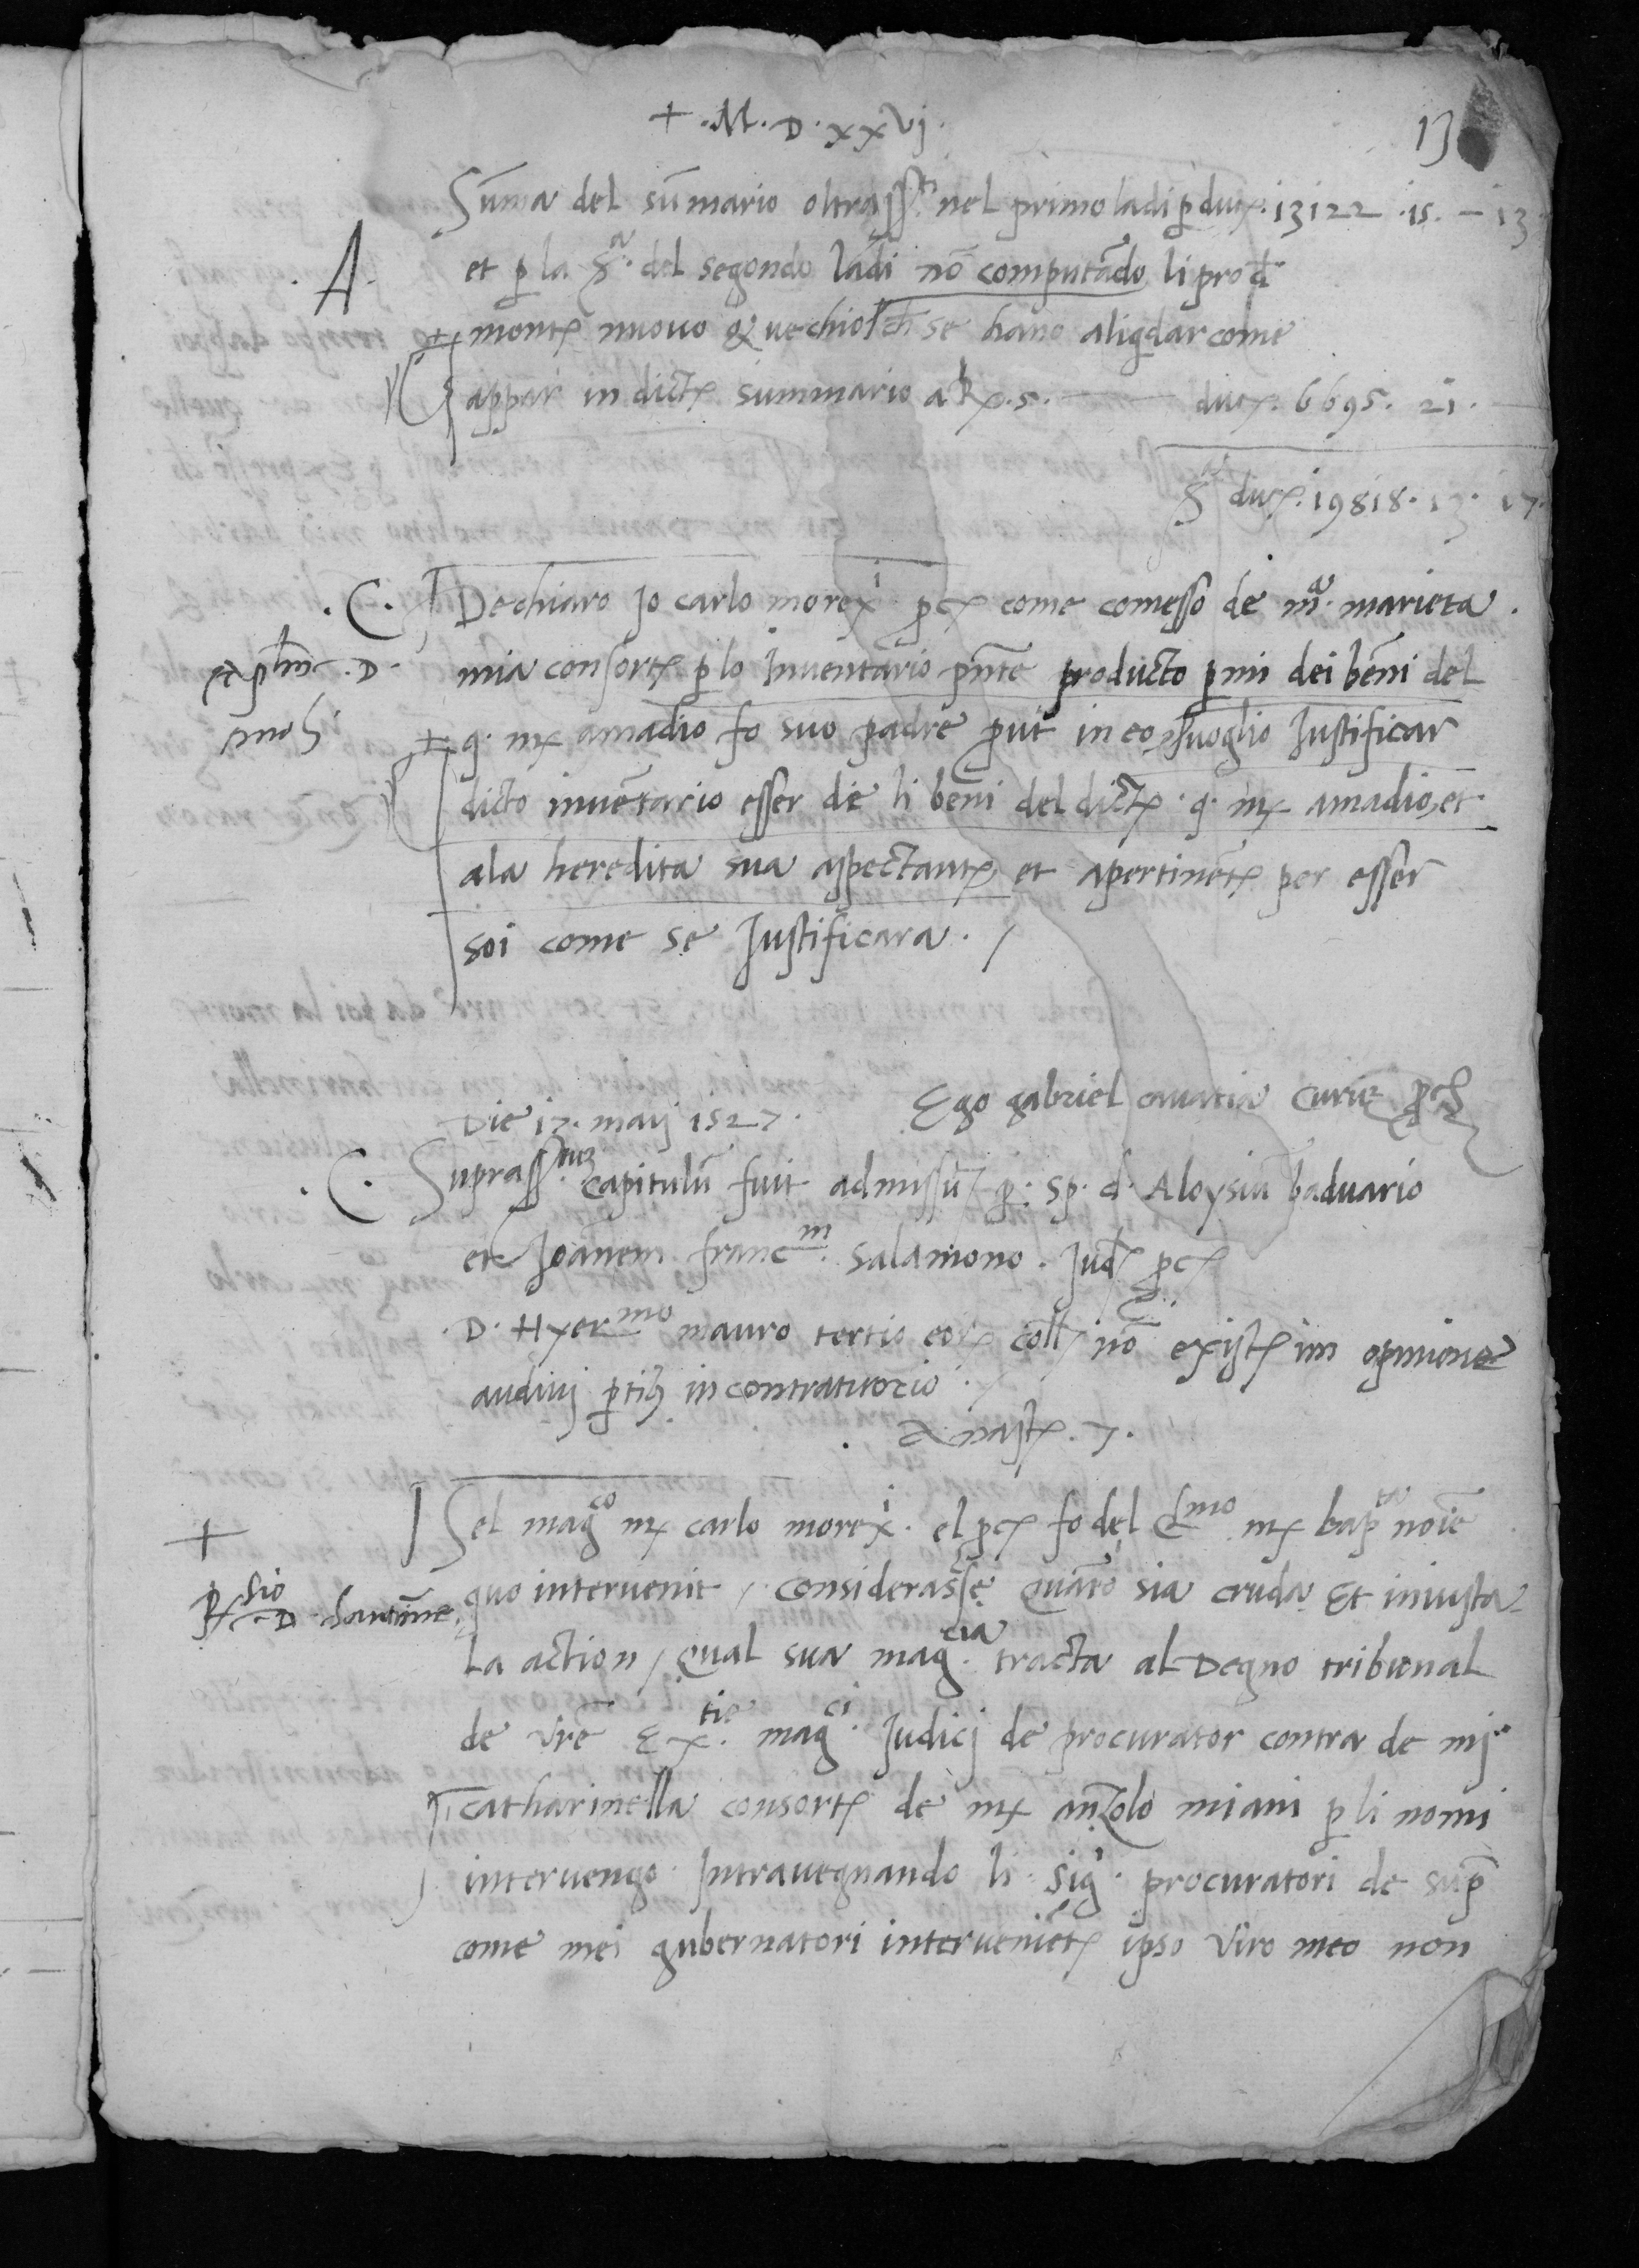 + .M.D.xxvj.
13
Suma del sumario oltrass.ti nel primo ladi p duc. 13122 .15. – 13
.A. et p la S.a del segondo ladi no computado li pro d
monte nuovo & vechio ch se hano aliqdar come
appar in dicte summario a k. 5. — duc. 6695. 21. —
S.a duc. 19818. 13. 17.
.C. Dechiaro Jo carlo morex.i pc come comesso de m.a marieta
mia consorte p lo Inventario pnte producto p mi dei beni del
q. mx amadio fo suo padre put in eo voglio Justificar
dicto inventario esser de li beni del dicte q. mx amadio, et
ala heredita sua aspectante et apertinete per esser
soi come se Justificara. /
Ego gabriel cavatia Curie pc
Die 17. maij 1527.
.C. Suprass.tum capitulu fuit admissu p. sp. d. Aloysiu baduario
et Joanem franc.m salamono. Jud pc
D. Hyer.mo mauro tertio eor coll no existe in opinione
audiui ptib in contraditorio
.7.
+ Sel mag.co mx carlo morex.i el pc fo del Cl.mo mx bap.ta noie
quo intervenit / considerasse quato sia cruda et iniusta
La action / qual sua mag.cia tracta al Degno tribunal
de vre Ex.tie mag.ci Judicj de procurator contra de mj
catharinella consorte de mx anzolo miani p li nomi
intervengo Intravegnando li sig.i procuratori de sup
come mei gubernatori interveniete ipso viro meo non